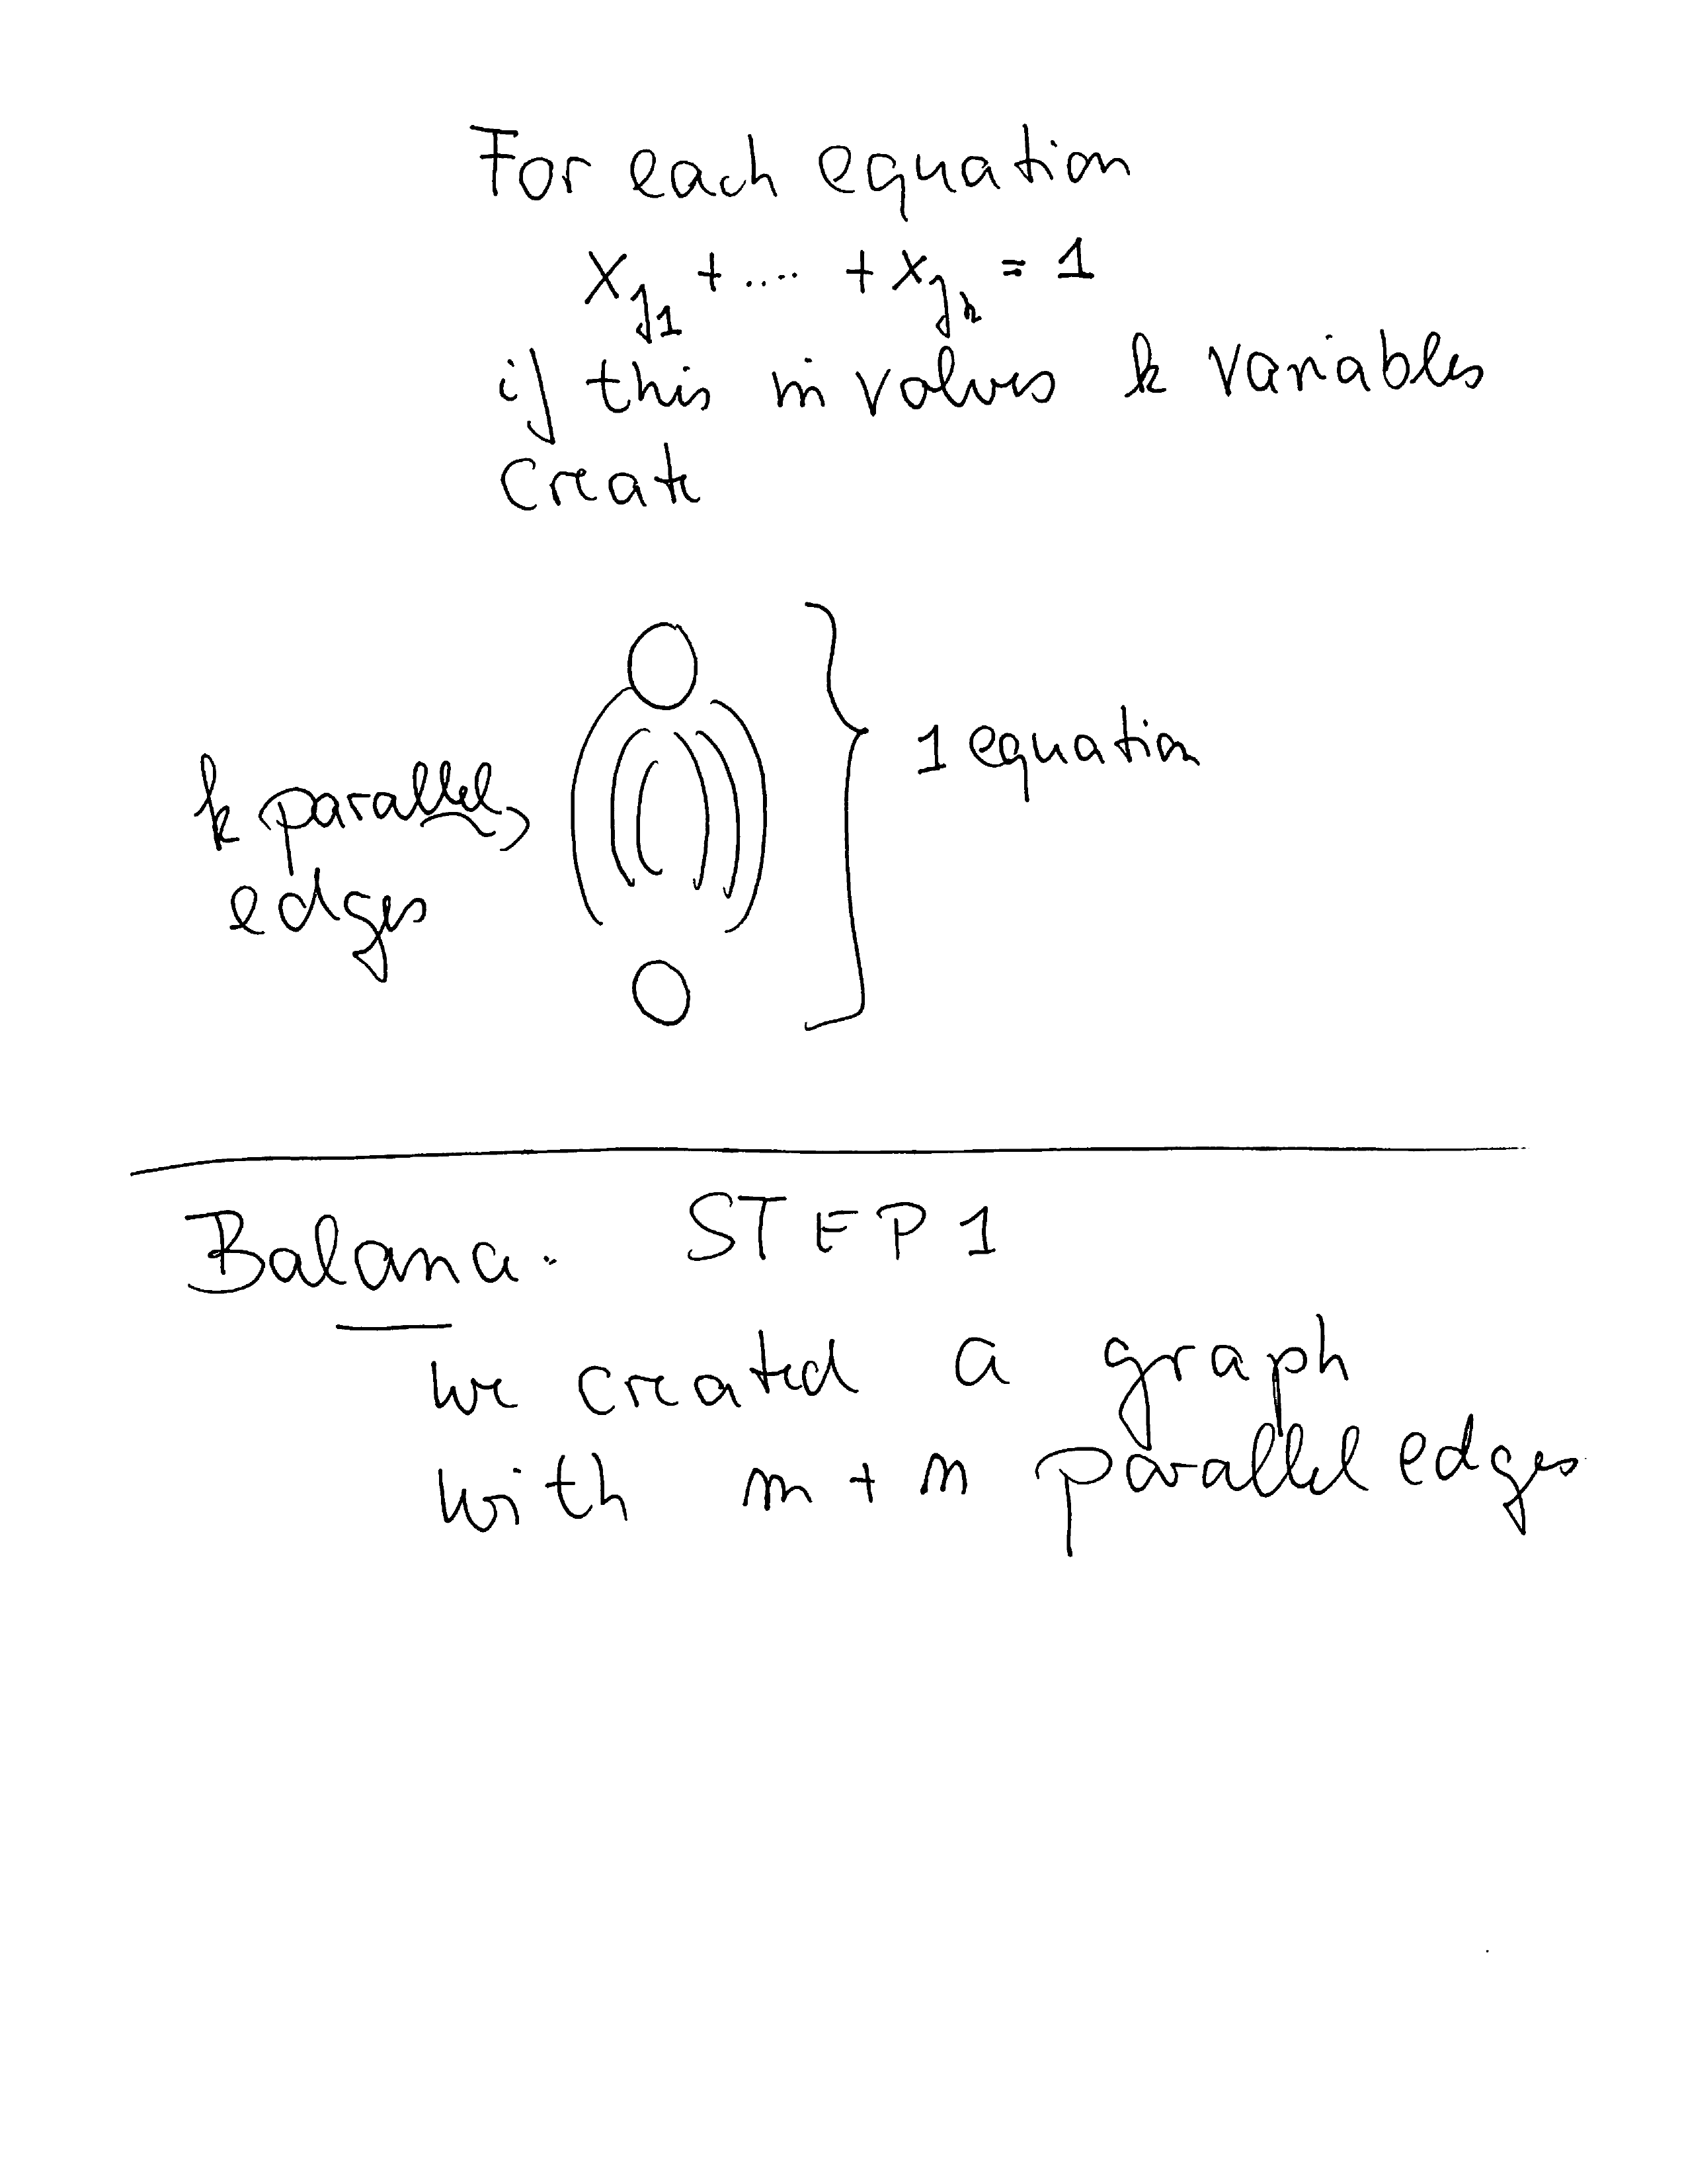 For each equation
x_{j_1} + .... + x_{j_k} = 1
if this involves k variables
Create
1 equation
k parallel
edges
Balance. STEP 1
we created a graph
with m + n parallel edges